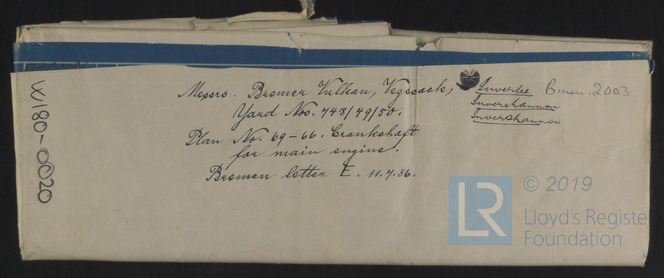 Messrs. Bremer Vulkan, Vegesack,
Yard Nos. 748/49/50.
Plan No. 69-66. Crankshaft
for main engine.
Bremen letter E. 11.7.36.
Inverlee
Invershannon
Invershannon
2003.
W180-0020
LR
© 2019
Lloyd's Register
Foundation